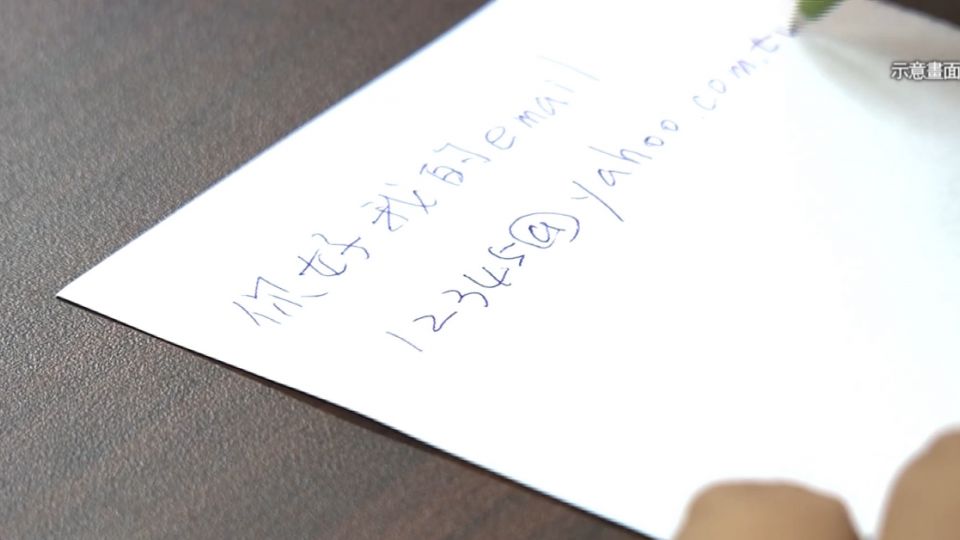 示意畫面
你好我的email
12345@yahoo.com.tw